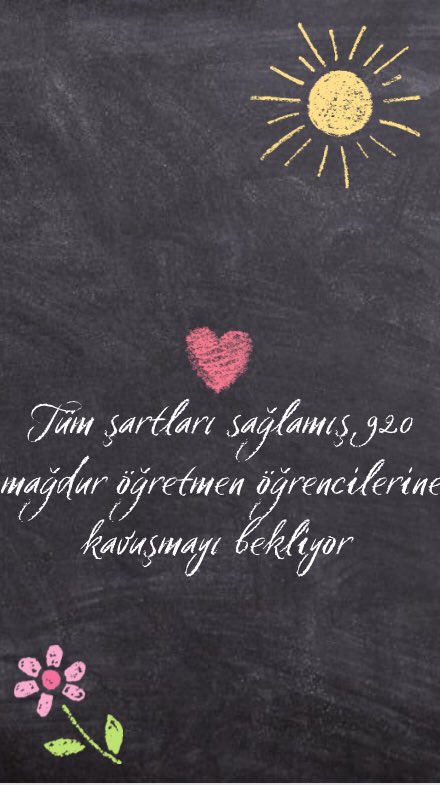 Tüm şartları sağlamış 920
mağdur öğretmen öğrencilerine
kavuşmayı bekliyor